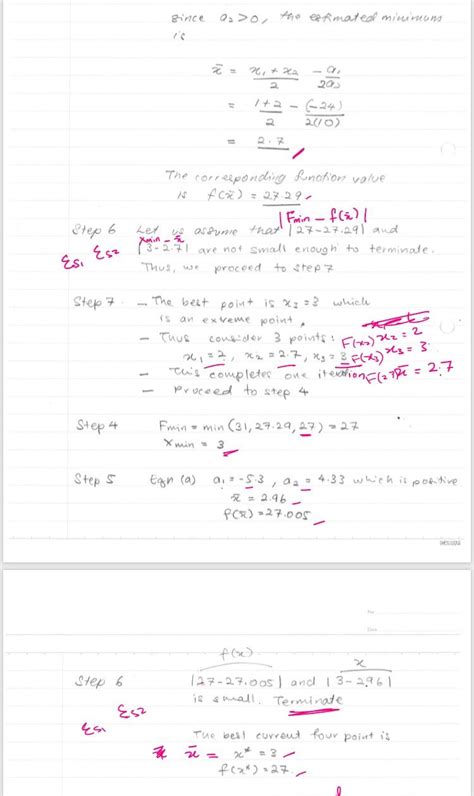 since a₂>0, the estimated minimum
is
x̄ = x₁+x₂/2 - a₁/2a₂
= 1+2/2 - (-24)/2(10)
= 2.7
The corresponding function value
is f(x̄) = 27.29
|Fmin - f(x̄)|
Step 6 Let us assume that |27-27.29| and
εs₁ εs₂ xmin - x̄
|3-2.7| are not small enough to terminate.
Thus, we proceed to step 7
Step 7 - The best point is x₃=3 which
is an extreme point.
- Thus consider 3 points: F(x₂) x₂=2
x₁=2, x₂=2.7, x₃=3 F(x₃) x₃=3
- This completes one iteration F(2.7) x̄ = 2.7
- Proceed to step 4
Step 4 Fmin = min (31, 27.29, 27) = 27
Xmin = 3
Step 5 Eqn (a) a₁=-5.3, a₂=4.33 which is positive
x̄ = 2.96
f(x̄) = 27.005
No:
Date:
f(x) x
Step 6 |27-27.005| and |3-2.96|
is small. Terminate
εs₁ εs₂
The best current four point is
x̄ = x* = 3
f(x*) = 27